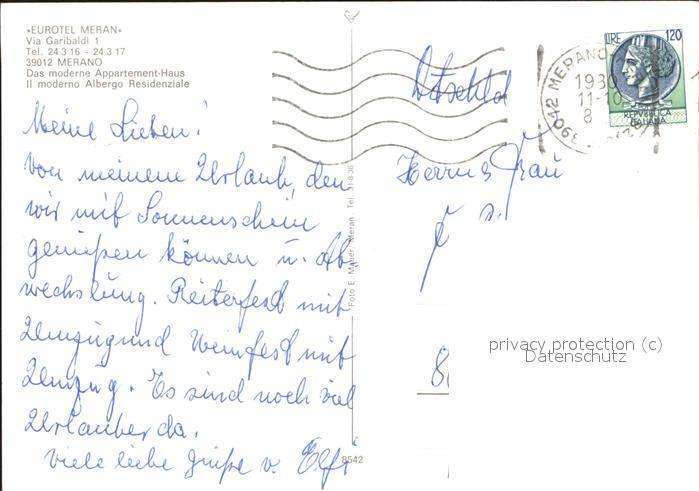 «EUROTEL MERAN»
Via Garibaldi 1
Tel. 24 3 16 - 24 3 17
39012 MERANO
Das moderne Appartement-Haus
Il moderno Albergo Residenziale
Meine Lieben!
Von meinem Urlaub, den
wir mit Sonnenschein
genießen können u. Ab,
wechslung. Reiterfest mit
Umzug und Weinfest mit
Umzug. Es sind noch viel
Urlauber da.
viele liebe Grüße v. Elfi
Foto E. Tel.
8542
LIRE 120
REPVBBLICA
ITALIANA
MERANO
1980
11-10
8
Herrn u Frau
8
privacy protection (c)
Datenschutz